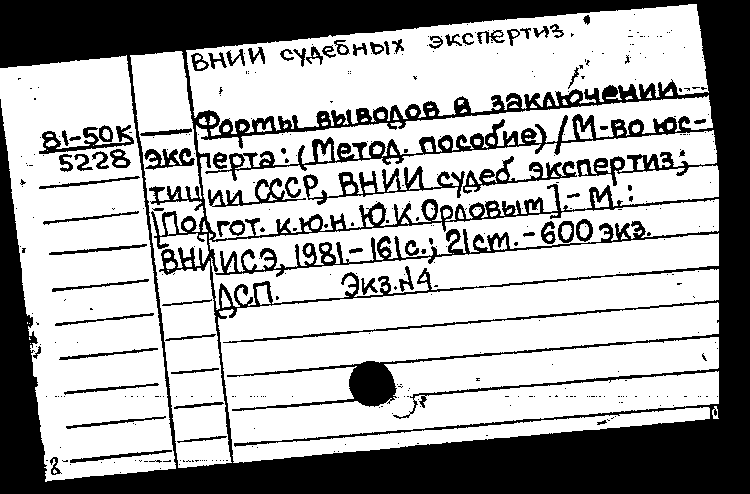 ВНИИ судебных экспертиз.
81-50К
5228
Формы выводов в заключении
эксперта: (Метод. пособие) / М-во юс-
тиции СССР, ВНИИ судеб. экспертиз;
[Подгот. к.ю.н. Ю.К.Орловым].- М.:
ВНИИСЭ, 1981.- 161с.; 21см.- 600 экз.
ДСП. Экз.№4.